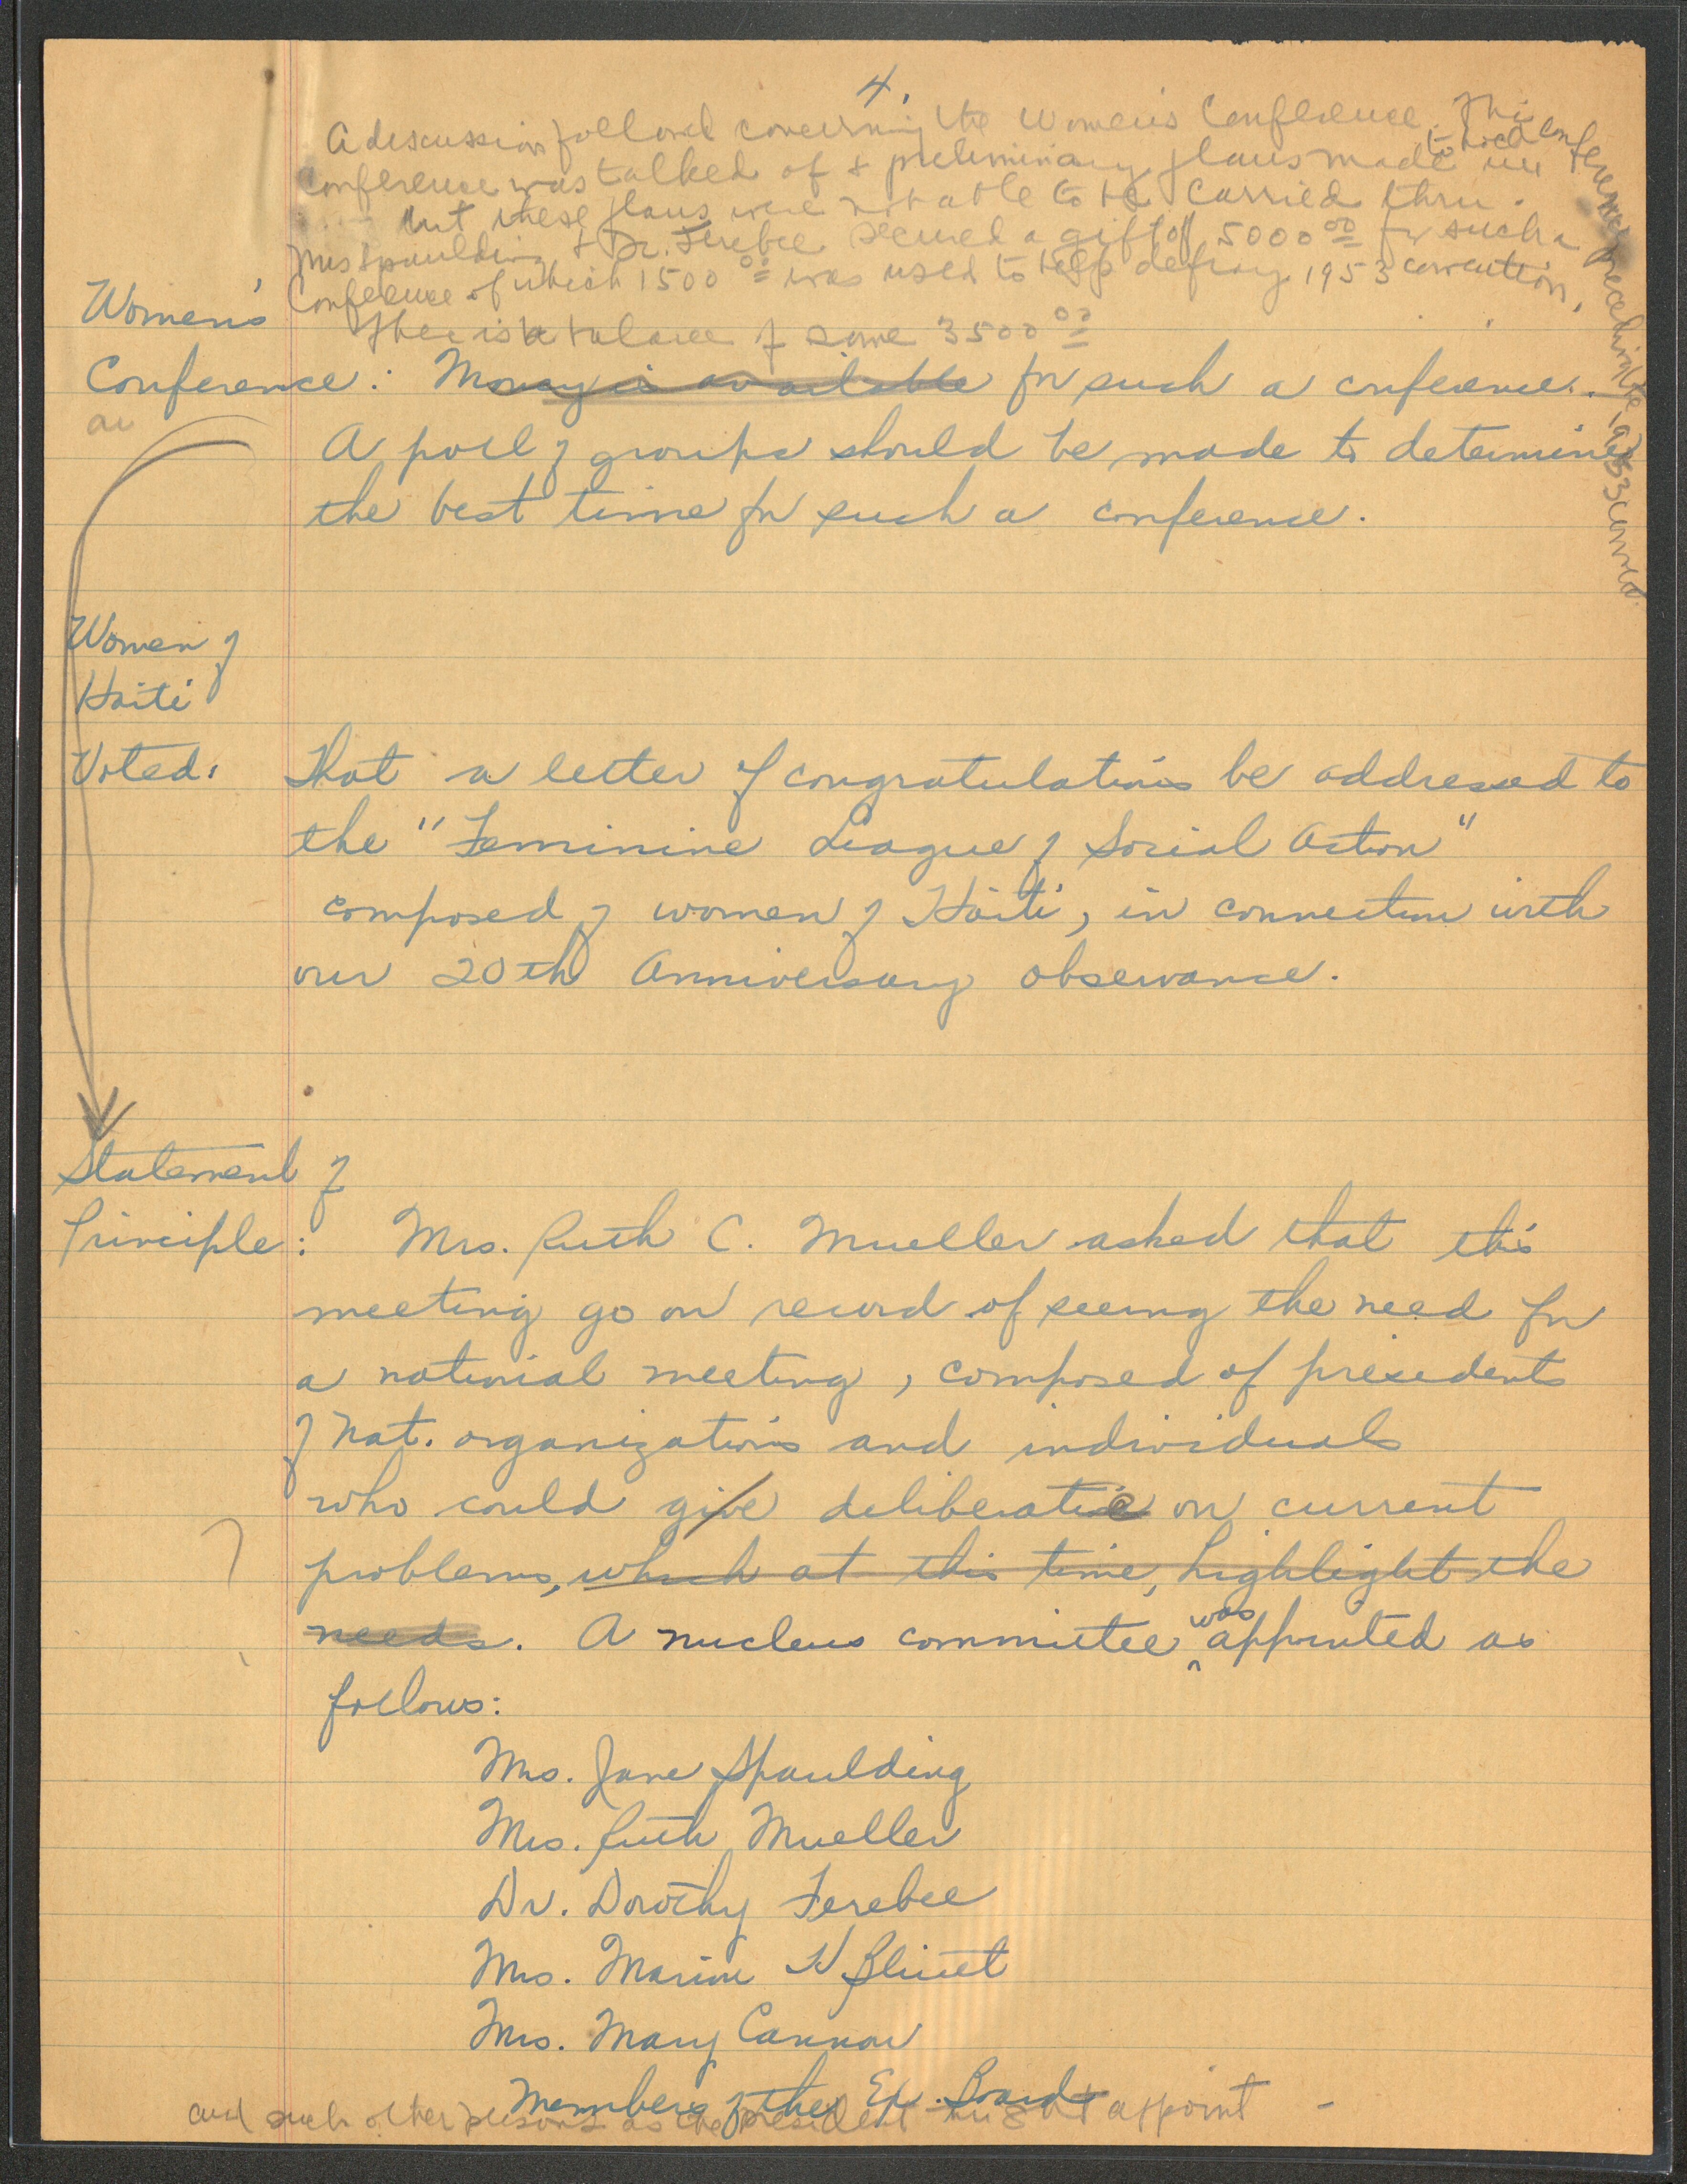 4.
A discussion followed concerning the Women's Conference. This
conference was talked of & preliminary plans made to hold conference preceding the 1953 conven.
but these plans were not able to be carried thru.
Mrs Spaulding & Dr. Ferebee secured a gift of 5000 00 for such a
Conference of which 1500 00 was used to help defray 1953 convention.
There is a balance of some 3500 00
Women's
Conference: Money is available for such a conference.
A poll of groups should be made to determine
the best time for such a conference.
Women of
Haiti
Voted: That a letter of congratulations be addressed to
the "Feminine League of Social Action"
composed of women of Haiti, in connection with
our 20th Anniversary observance.
Statement of
Principle: Mrs. Ruth C. Mueller asked that this
meeting go on record of seeing the need for
a national meeting, composed of presidents
of Nat. organizations and individuals
who could give deliberate on current
problems, which at this time, highlight the
needs. A nucleus committee was appointed as
follows:
Mrs. Jane Spaulding
Mrs. Ruth Mueller
Dr. Dorothy Ferebee
Mrs. Marion H Bluitt
Mrs. Mary Cannon
Members of the Ex. Board
and such other persons as the president might appoint